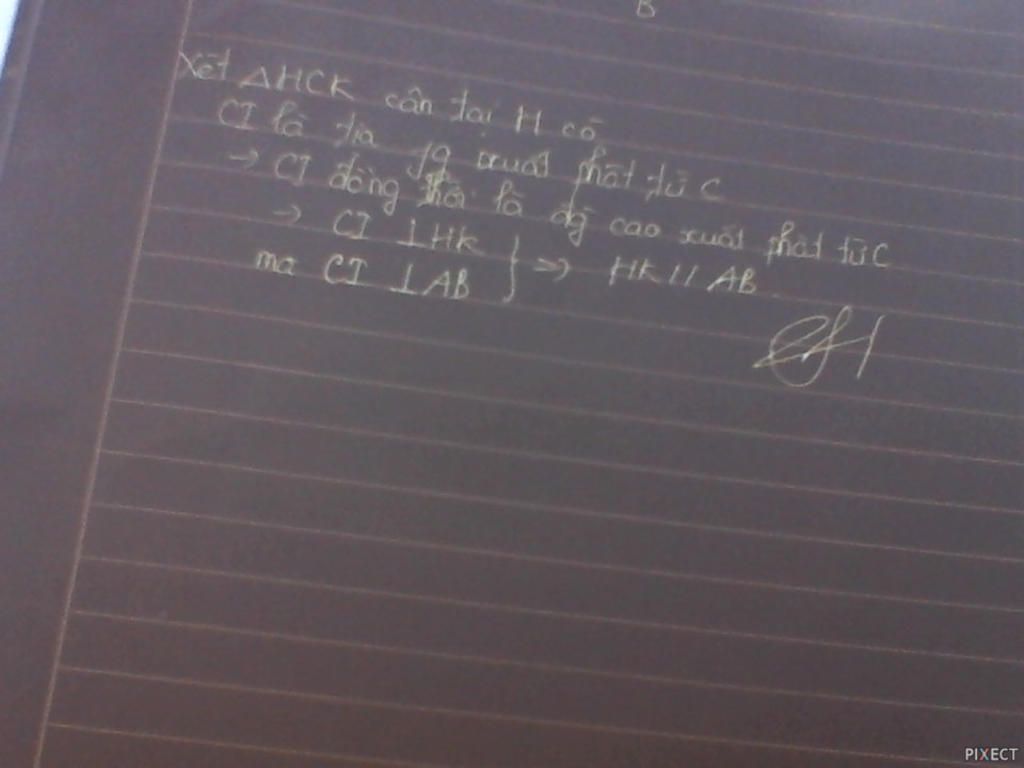 B
Xét ΔHCK cân tại H có
CI là tia pg xuất phát từ C
→ CI đồng thời là đg cao xuất phát từ C
→ CI ⊥ HK
mà CI ⊥ AB } => HK // AB
PIXECT